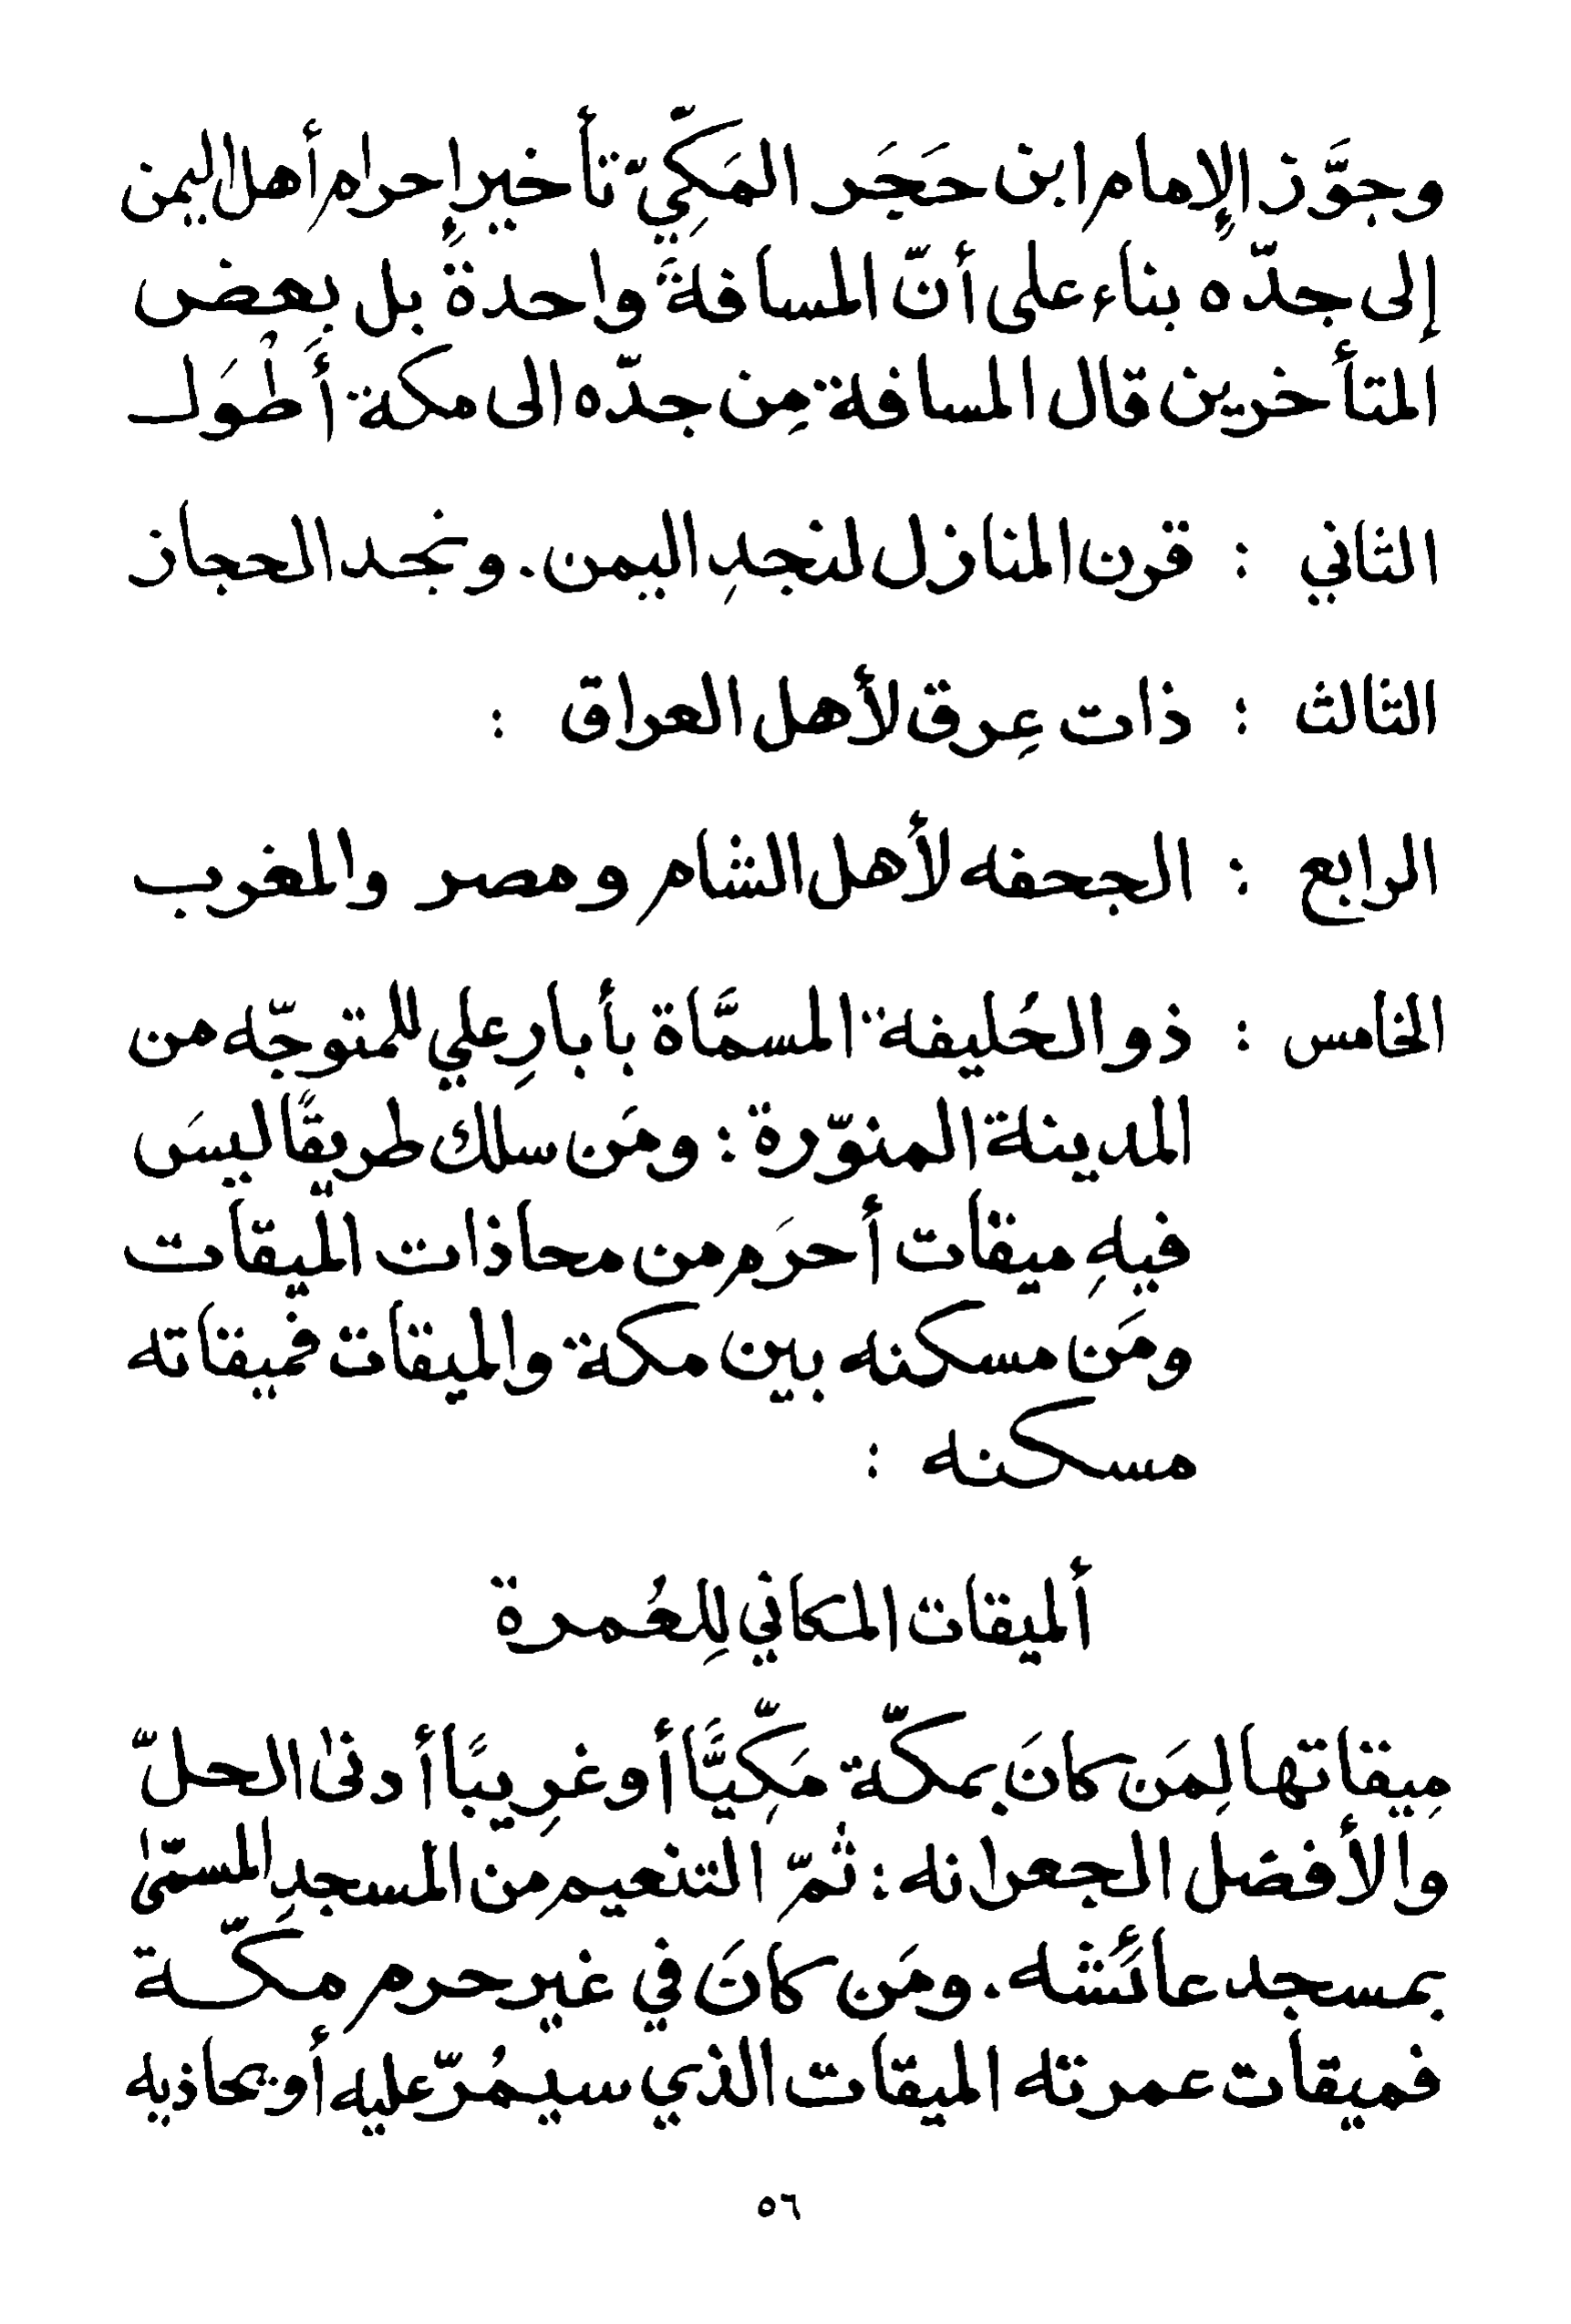 وجوَّز الإمام ابن حَجَر المَكِّيّ تأخير إحرام أهل اليمن
إلى جدّه بناء على أنّ المسافةَ واحدةً بل بعض
المتأخرين قال المسافة مِن جدّه الى مكة أَطْوَل
الثاني : قرن المنازل لنجدِ اليمن . ونجد الحجاز
الثالث : ذات عِرق لأهل العراق :
الرابع : الجحفه لأهل الشام ومصر والمغرب
الخامس : ذو الحُليفة المسمَّاة بأبارِ علي للمتوجّه من
المدينة المنوّرة : ومَن سلك طريقًا ليسَ
فيهِ ميقات أحرَم من محاذات الميقات
ومَن مسكنه بين مكة والميقات فميقاته
مسكنه :
ألميقات المكاني لِلعُمرة
مِيقاتها لِمَن كانَ بمكّة مَكِّيًّا أو غرِيبًا أدنىٰ الحلّ
والأفضل الجعرانه : ثمَّ التنعيم مِن المسجدِ المسمّىٰ
بمسجد عائشه . ومَن كانَ في غير حرم مكّة
فميقات عمرته الميقات الذي سيمُرّ عليه أو يحاذيه
٥٦